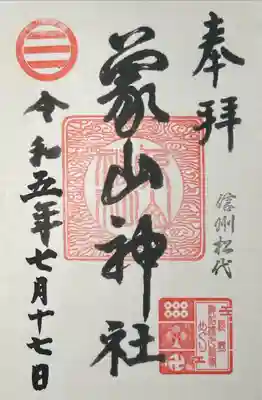 奉拝
信州松代
象山神社
令和五年七月十七日